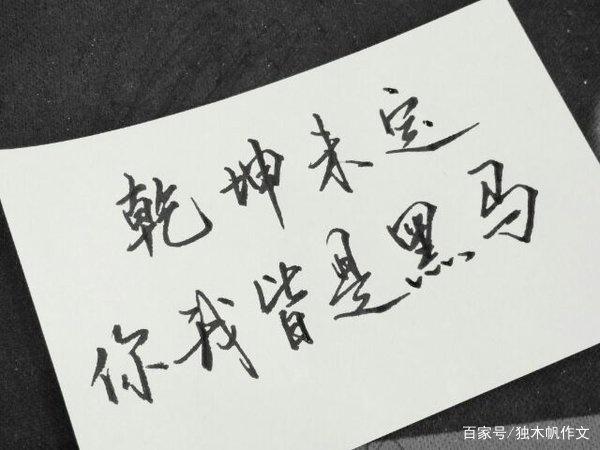 乾坤未定
你我皆是黑马
百家号/独木帆作文